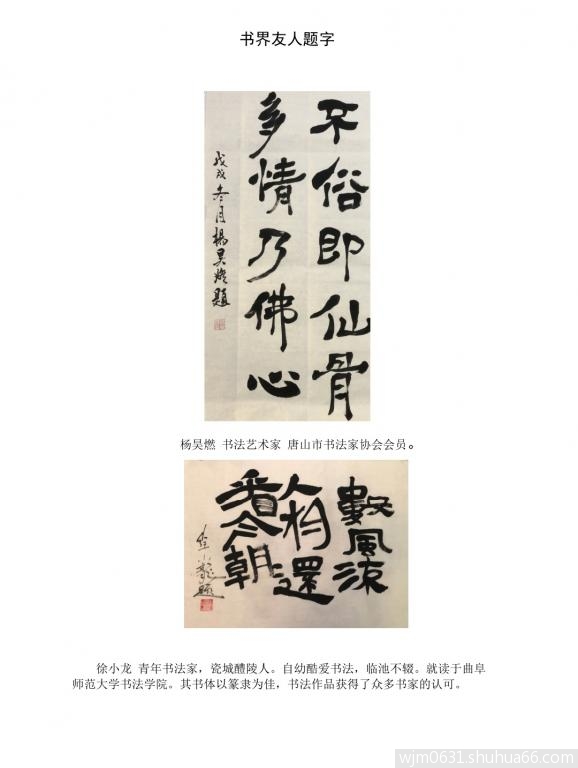 书界友人题字
不俗即仙骨
多情乃佛心
戊戌冬月楊昊燃題
杨昊燃 书法艺术家 唐山市书法家协会会员。
數風流
人物還
看今朝
小龍題
徐小龙 青年书法家，瓷城醴陵人。自幼酷爱书法，临池不辍。就读于曲阜
师范大学书法学院。其书体以篆隶为佳，书法作品获得了众多书家的认可。
wjm0631.shuhua66.com